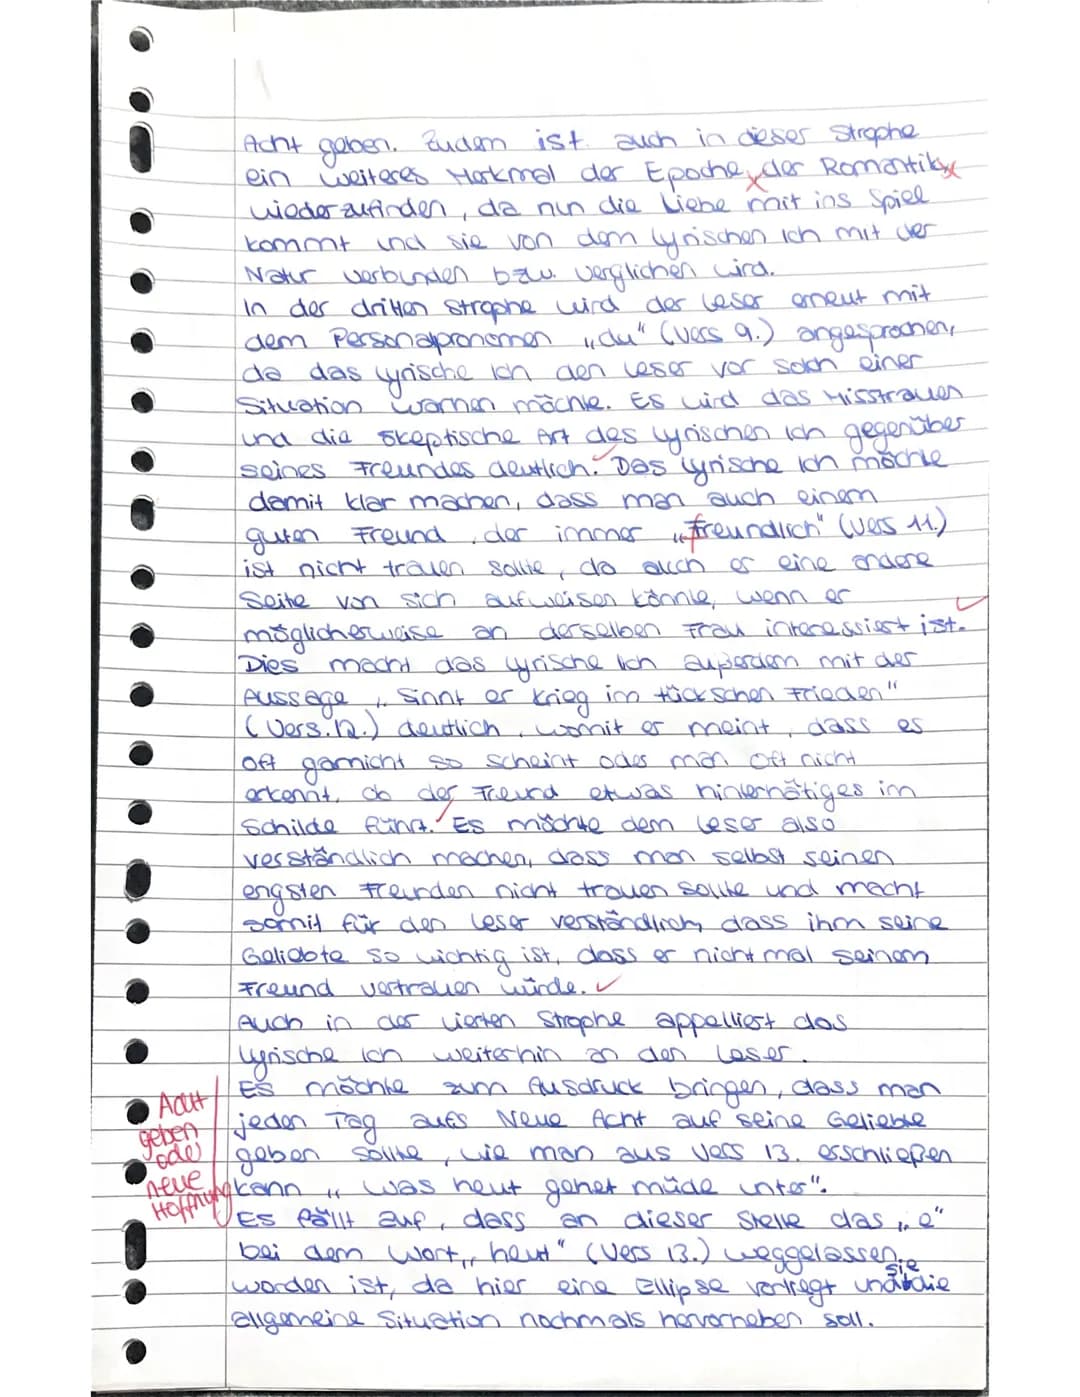 Acht geben. Zudem ist auch in dieser Strophe
ein weiteres Merkmal der Epoche, der Romantik,
wiederzufinden, da nun die Liebe mit ins Spiel
kommt und sie von dem lyrischen Ich mit der
Natur verbunden bzw. verglichen wird.
In der dritten Strophe wird der Leser erneut mit
dem Personalpronomen „du" (Vers 9.) angesprochen,
da das lyrische Ich den Leser vor solch einer
Situation warnen möchte. Es wird das Misstrauen
und die skeptische Art des lyrischen Ich gegenüber
seines Freundes deutlich. Das lyrische Ich möchte
damit klar machen, dass man auch einem
guten Freund, der immer „freundlich" (Vers 11.)
ist nicht trauen sollte, da auch er eine andere
Seite von sich aufweisen könnte, wenn er
möglicherweise an derselben Frau interessiert ist.
Dies macht das lyrische Ich außerdem mit der
Aussage „Sinnt er Krieg im tückschen Frieden"
(Vers.12.) deutlich, womit er meint, dass es
oft garnicht so scheint oder man oft nicht
erkennt, ob der Freund etwas hinterhätiges im
Schilde führt. Es möchte dem Leser also
verständlich machen, dass man selbst seinen
engsten Freunden nicht trauen sollte und macht
somit für den Leser verständlich, dass ihm seine
Geliebte so wichtig ist, dass er nicht mal seinem
Freund vertrauen würde.
Auch in der vierten Strophe appelliert das
lyrische Ich weiterhin an den Leser.
Es möchte zum Ausdruck bringen, dass man
jeden Tag aufs Neue Acht auf seine Geliebte
geben sollte, wie man aus Vers 13. erschließen
kann „Was heut gehet müde unter".
Es fällt auf, dass an dieser Stelle das „e"
bei dem Wort „heut" (Vers 13.) weggelassen
worden ist, da hier eine Ellipse vorliegt und sie die
allgemeine Situation nochmals hervorheben soll.
Acht
geben
oder
neue
Hoffnung